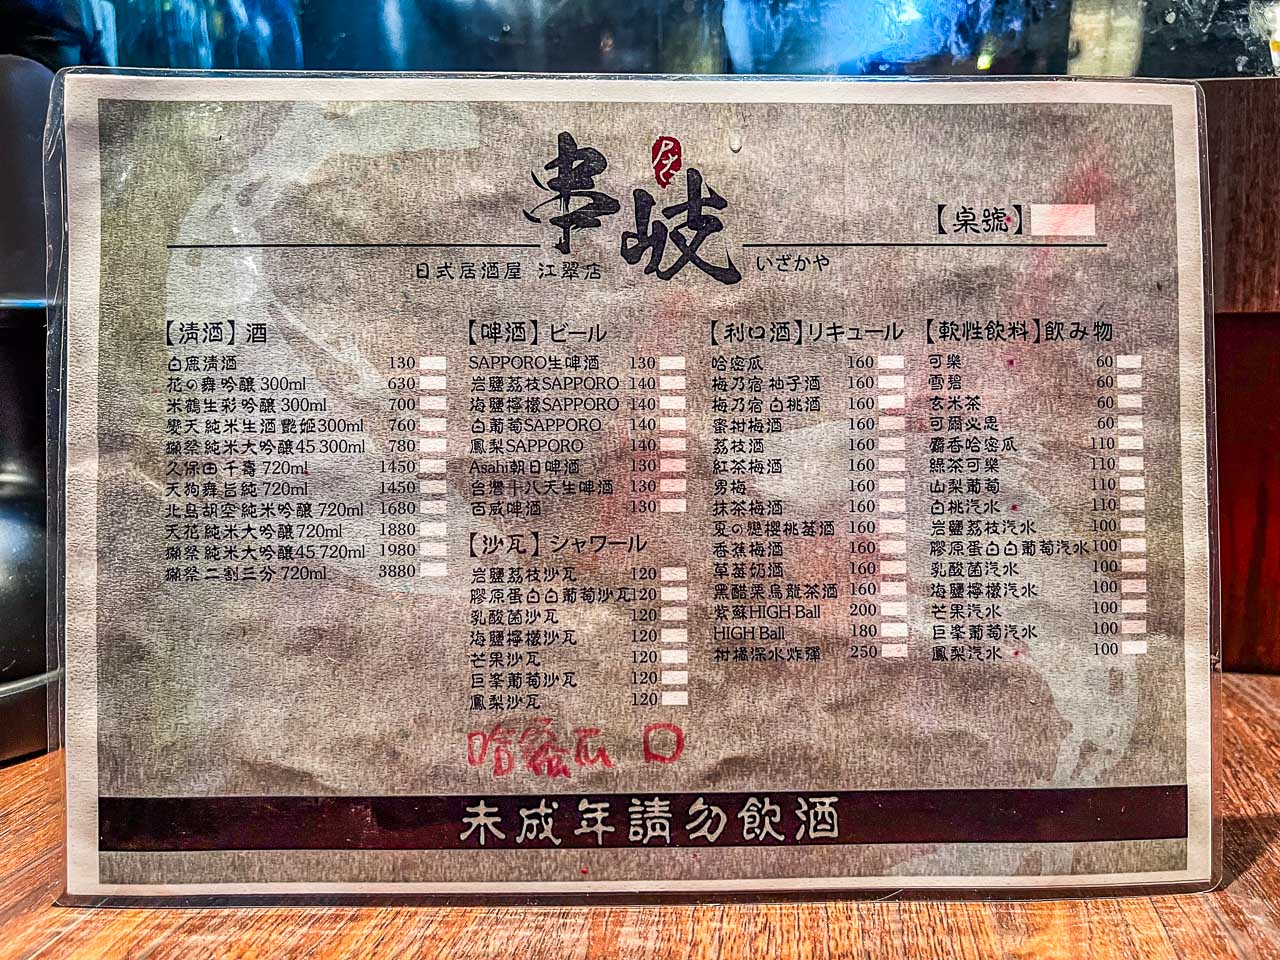 串岐
居
【桌號】
日式居酒屋 江翠店
いざかや
【清酒】酒
白鹿清酒 130
花の舞吟釀 300ml 630
米鶴生彩吟釀 300ml 700
變天純米生酒艷姬300ml 760
獺祭純米大吟釀45 300ml 780
久保田千壽 720ml 1450
天狗舞旨純 720ml 1450
北島胡空純米吟釀 720ml 1680
天花純米大吟釀720ml 1880
獺祭純米大吟釀45 720ml 1980
獺祭二割三分 720ml 3880
【啤酒】ビール
SAPPORO生啤酒 130
岩鹽荔枝SAPPORO 140
海鹽檸檬SAPPORO 140
白葡萄SAPPORO 140
鳳梨SAPPORO 140
Asahi朝日啤酒 130
台灣十八天生啤酒 130
百威啤酒 130
【沙瓦】シャワール
岩鹽荔枝沙瓦 120
膠原蛋白白葡萄沙瓦120
乳酸菌沙瓦 120
海鹽檸檬沙瓦 120
芒果沙瓦 120
巨峯葡萄沙瓦 120
鳳梨沙瓦 120
哈密瓜
【利口酒】リキュール
哈密瓜 160
梅乃宿 柚子酒 160
梅乃宿 白桃酒 160
蜜柑梅酒 160
荔枝酒 160
紅茶梅酒 160
男梅 160
抹茶梅酒 160
夏の戀櫻桃莓酒 160
香蕉梅酒 160
草莓奶酒 160
黑醋栗烏龍茶酒 160
紫蘇HIGH Ball 200
HIGH Ball 180
柑橘深水炸彈 250
【軟性飲料】飲み物
可樂 60
雪碧 60
玄米茶 60
可爾必思 60
麝香哈密瓜 110
綠茶可樂 110
山梨葡萄 110
白桃汽水 110
岩鹽荔枝汽水 100
膠原蛋白白葡萄汽水100
乳酸菌汽水 100
海鹽檸檬汽水 100
芒果汽水 100
巨峯葡萄汽水 100
鳳梨汽水 100
未成年請勿飲酒